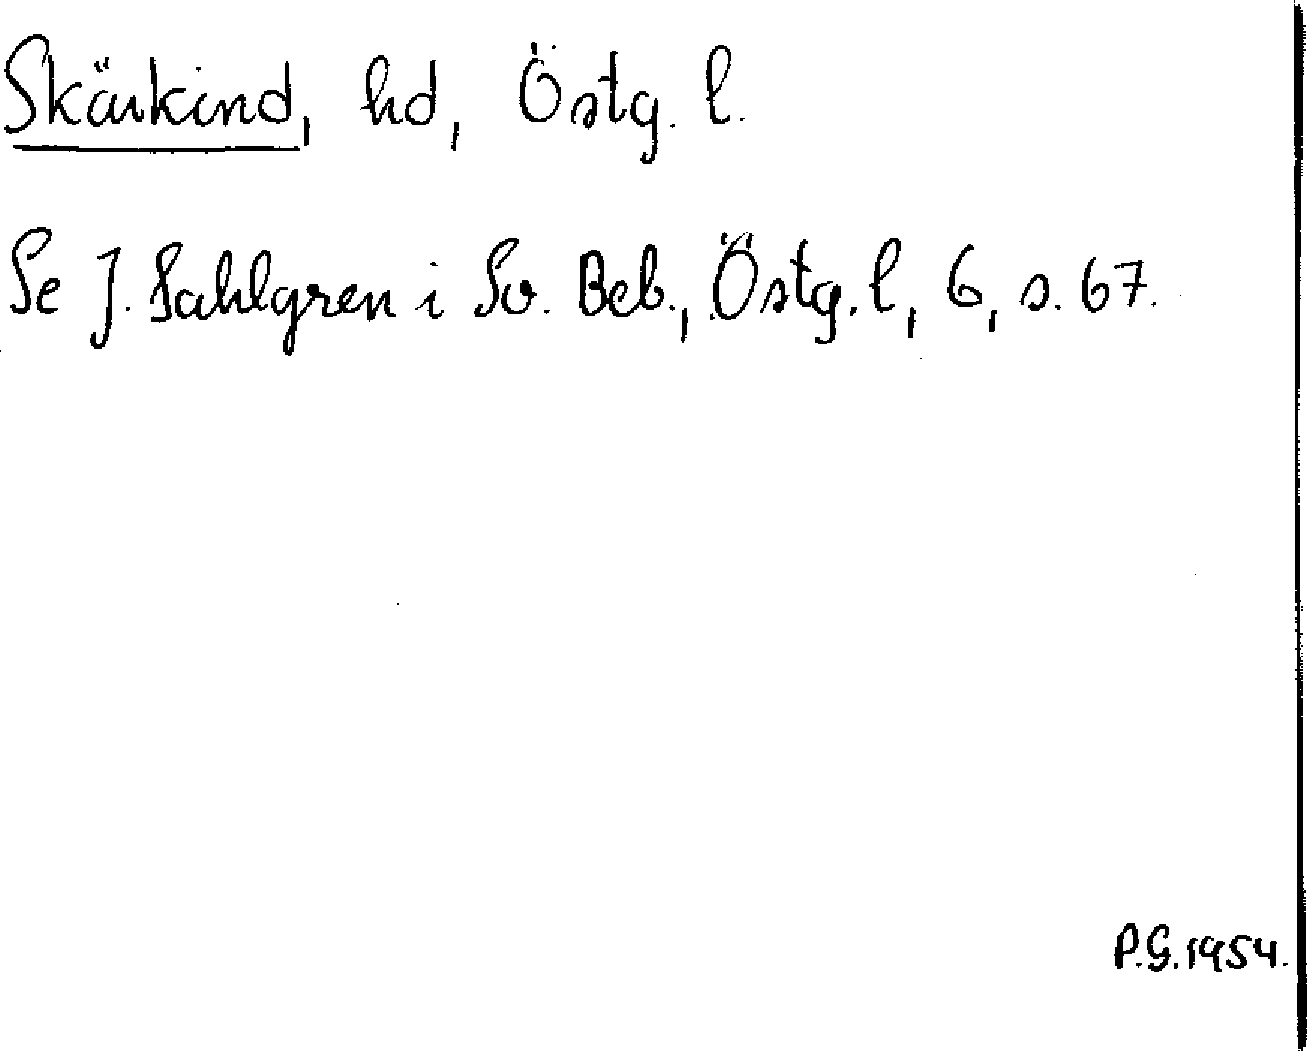 Skärkind, hd, Östg. l.
Se J. Sahlgren i Sv. Beb., Östg. l, 6, s. 67.
P.G. 1954.